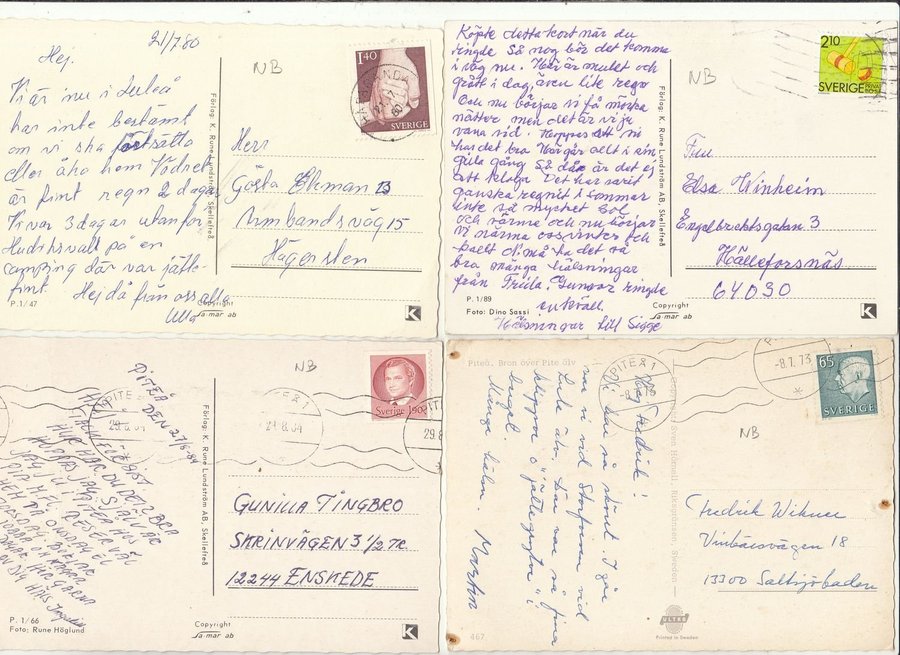 21/7 80
Hej.
Vi är nu i Luleå
har inte bestämt
om vi ska fortsätta
eller åka hem Vädret
är fint regn 2 dagar
Vi var 3 dagar utanför
Hudiksvall på en
camping där var jätte-
fint. Hej då från oss alla
Ulla
P. 1/47
Förlag: K. Rune Lundström AB. Skellefteå
NB
1.40
SVERIGE
Herr
Gösta Ekman 13
Armbandsväg 15
Hägersten
Copyright
sa-mar ab
K
Köpte detta kort när du
ringde Så nog bör det komma
i väg nu. Här är mulet och
grått i dag, även lite regn
Och nu börjar vi få mörka
nätter men det är vi ju
vana vid. Hoppas att ni
har det bra Här går allt i sin
gila gång Så där är det ej
att klaga Det har varit
ganska regnit i sommar
inte så mycket sol
och värme och nu börjar
vi närma oss vinter och
kallt Ni må ha det så
bra många hälsningar
från Frida, Gunvor ringde
i kväll.
Hälsningar till Sigge
P. 1/89
Foto: Dino Sassi
Förlag: K. Rune Lundström AB. Skellefteå
NB
2.10
SVERIGE
Fru
Elsa Winheim
Engelbrektsgatan 3
Hälleforsnäs
64030
Copyright
sa-mar ab
K
PITEÅ DEN 27/8-84
HUR HAR DU DET BRA
HOPPAS JAG. SJÄLV ÄR
JAG
P. 1/66
Foto: Rune Höglund
Förlag: K. Rune Lundström AB. Skellefteå
NB
PITEÅ 1
29.8.84
Sverige 1.90
GUNILLA TINGBRO
SKRINVÄGEN 3 1/2 TR
12244 ENSKEDE
Copyright
sa-mar ab
K
Piteå. Bron över Pite älv
Hej Fredrik!
Vi har så skönt. I går
var vi vid Storforsen vid
Lule älv. Där var så fina
klippor o "jättegrytor" i
berget.
Många häls. Morton
467
Sven Hörnell, Riksgränsen - Sweden
PITEÅ 1
-8.7.73
NB
65
SVERIGE
Fredrik Wikner
Vinbärsvägen 18
13300 Saltsjöbaden
ULTRA
Printed in Sweden